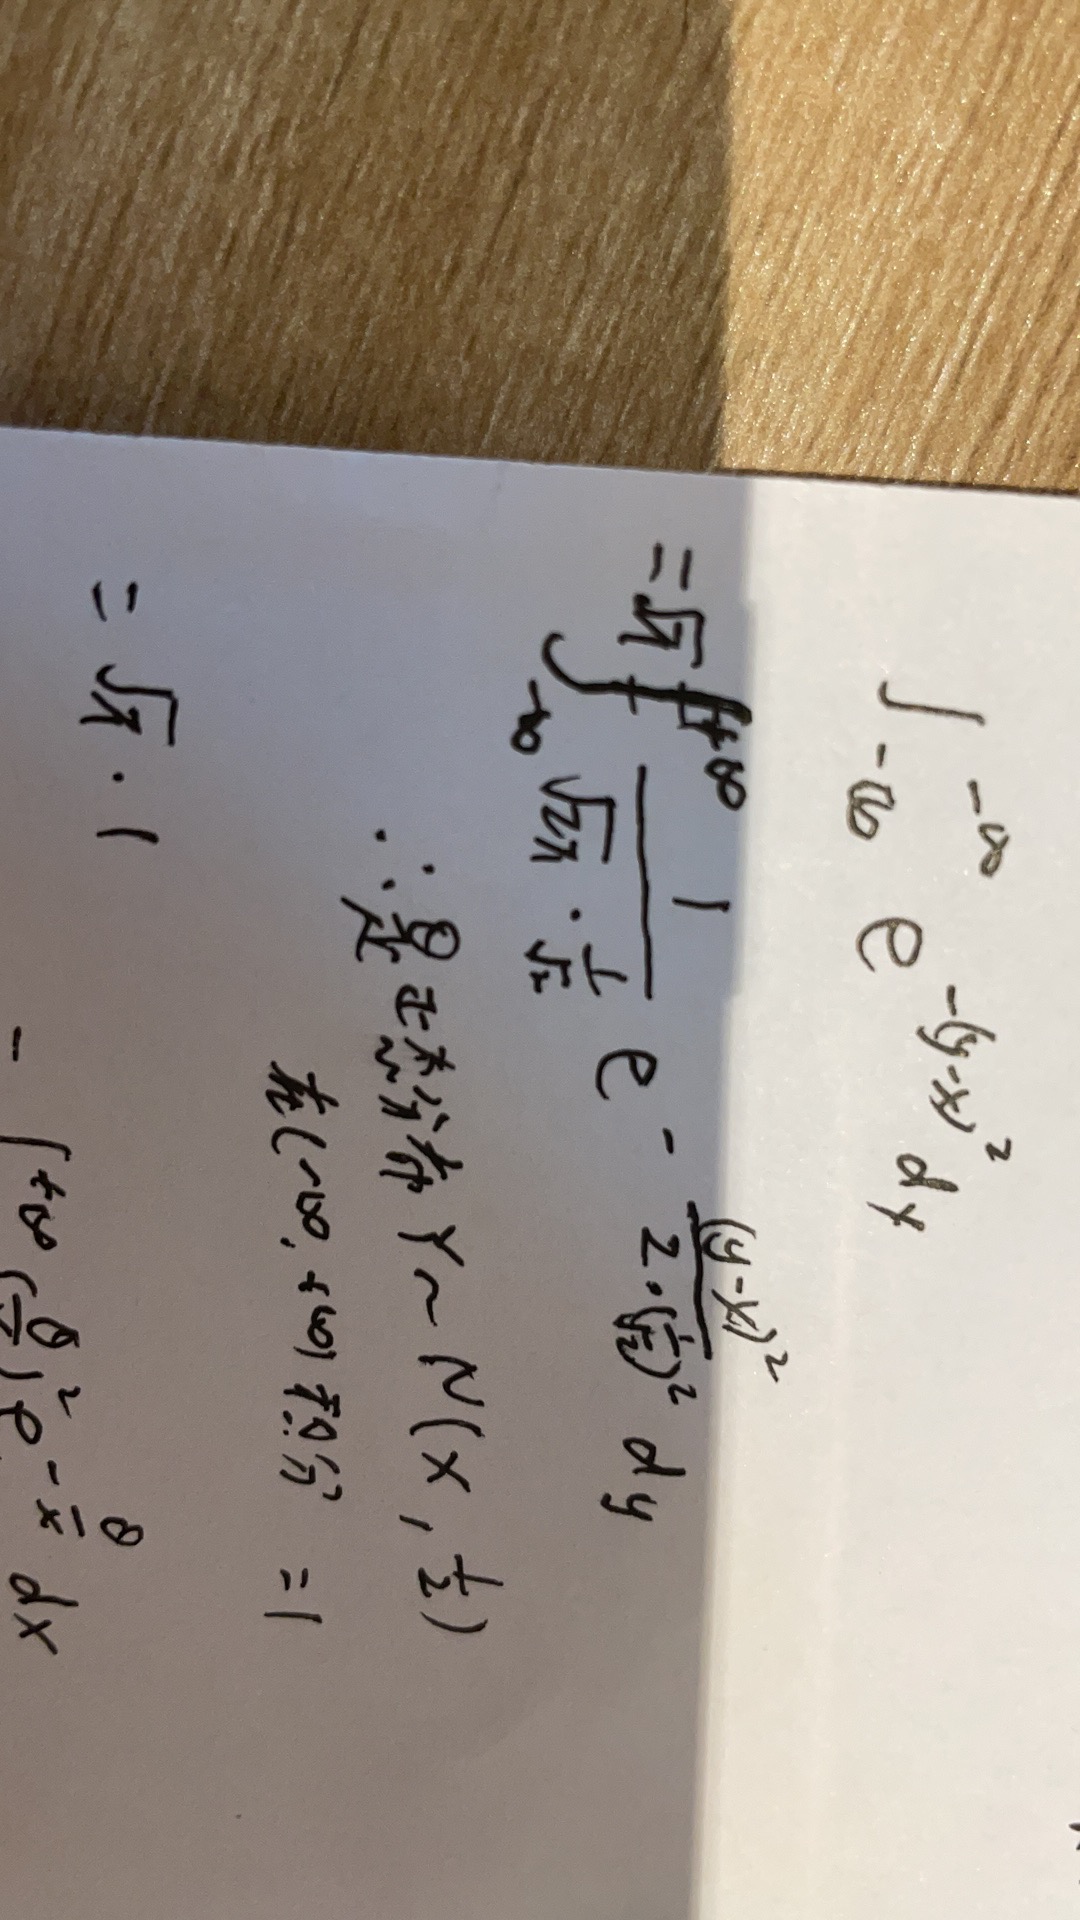 ∫_{-∞}^{-∞} e^{-(y-x)^2} dy
= √π ∫_{-∞}^{+∞} \frac{1}{√2π · \frac{1}{√2}} e^{-\frac{(y-x)^2}{2·(\frac{1}{√2})^2}} dy
∵ 是正态分布 Y ~ N(x, \frac{1}{2})
在(-∞, +∞)积分 = 1
= √π · 1
- ∫^{+∞} (\frac{θ}{})^2 e^{-\frac{θ}{x}} dx